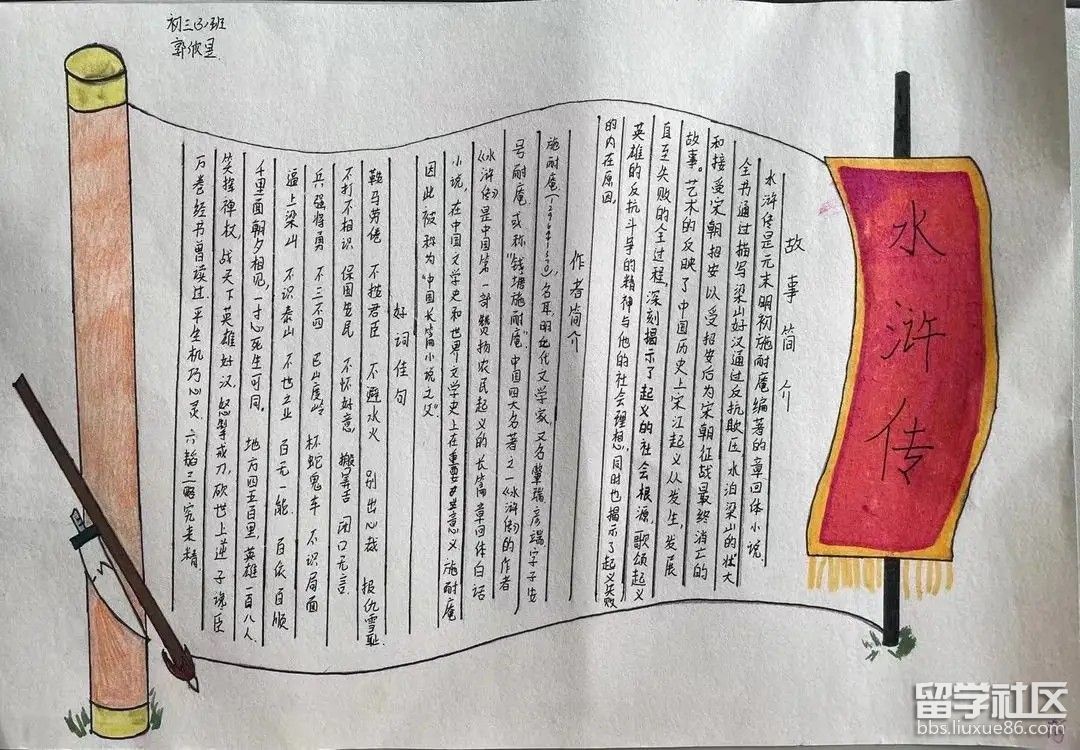 初三(3)班
水浒传
故事简介
水浒传是元末明初施耐庵编著的章回体小说
全书通过描写梁山好汉通过反抗欺压水泊梁山的壮大
和接受宋朝招安以受招安后为宋朝征战最终消亡的
故事。艺术的反映了中国历史上宋江起义从发生,发展
直至失败的全过程,深刻揭示了起义的社会根源,歌颂起义
英雄的反抗斗争的精神与他的社会理想,同时也揭示了起义失败
的内在原因。
作者简介
施耐庵(1296-1370),名耳,明代文学家,又名肇瑞彦端字子安
号耐庵或称"钱塘施耐庵"中国四大名著之一《水浒传》的作者
《水浒传》是中国第一部赞扬农民起义的长篇章回体白话
小说,在中国文学史和世界文学史上在重要意义施耐庵
因此被称为"中国长篇小说之父"
好词佳句
鞍马劳倦 不揽君臣 不避水火 别出心裁 报仇雪耻
不打不相识 保国安民 不怀好意 搬弄舌 闭口无言
兵强将勇 不三不四 巴山度岭 杯蛇鬼车 不识局面
逼上梁山 不识泰山 不世之业 百无一能 百依百顺
千里面朝夕相见,一寸心死生可同。 地方四五百里,英雄一百八人
笑挥禅杖,战天下英雄好汉,怒掣戒刀,砍世上逆子谗臣
万卷经书曾读过,平生机巧心灵,六韬三略究来精
留学社区
bbs.liuxue86.com